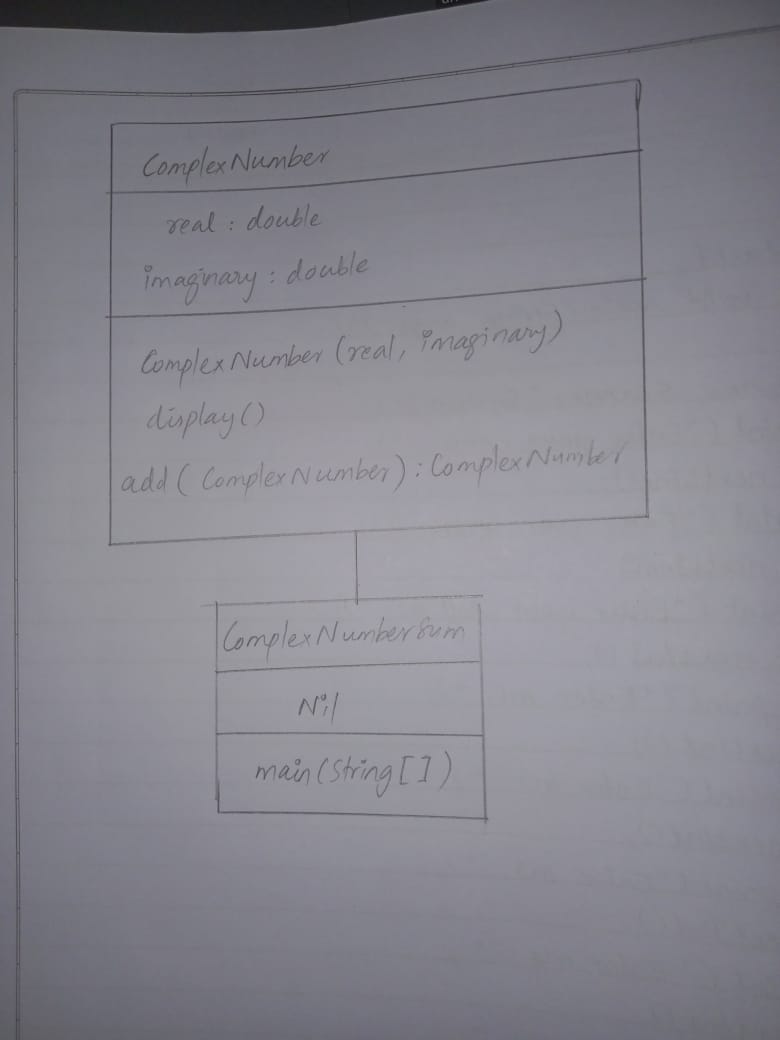 ComplexNumber
real : double
imaginary : double
ComplexNumber (real, imaginary)
display()
add ( ComplexNumber) : ComplexNumber
ComplexNumberSum
Nil
main(String[])